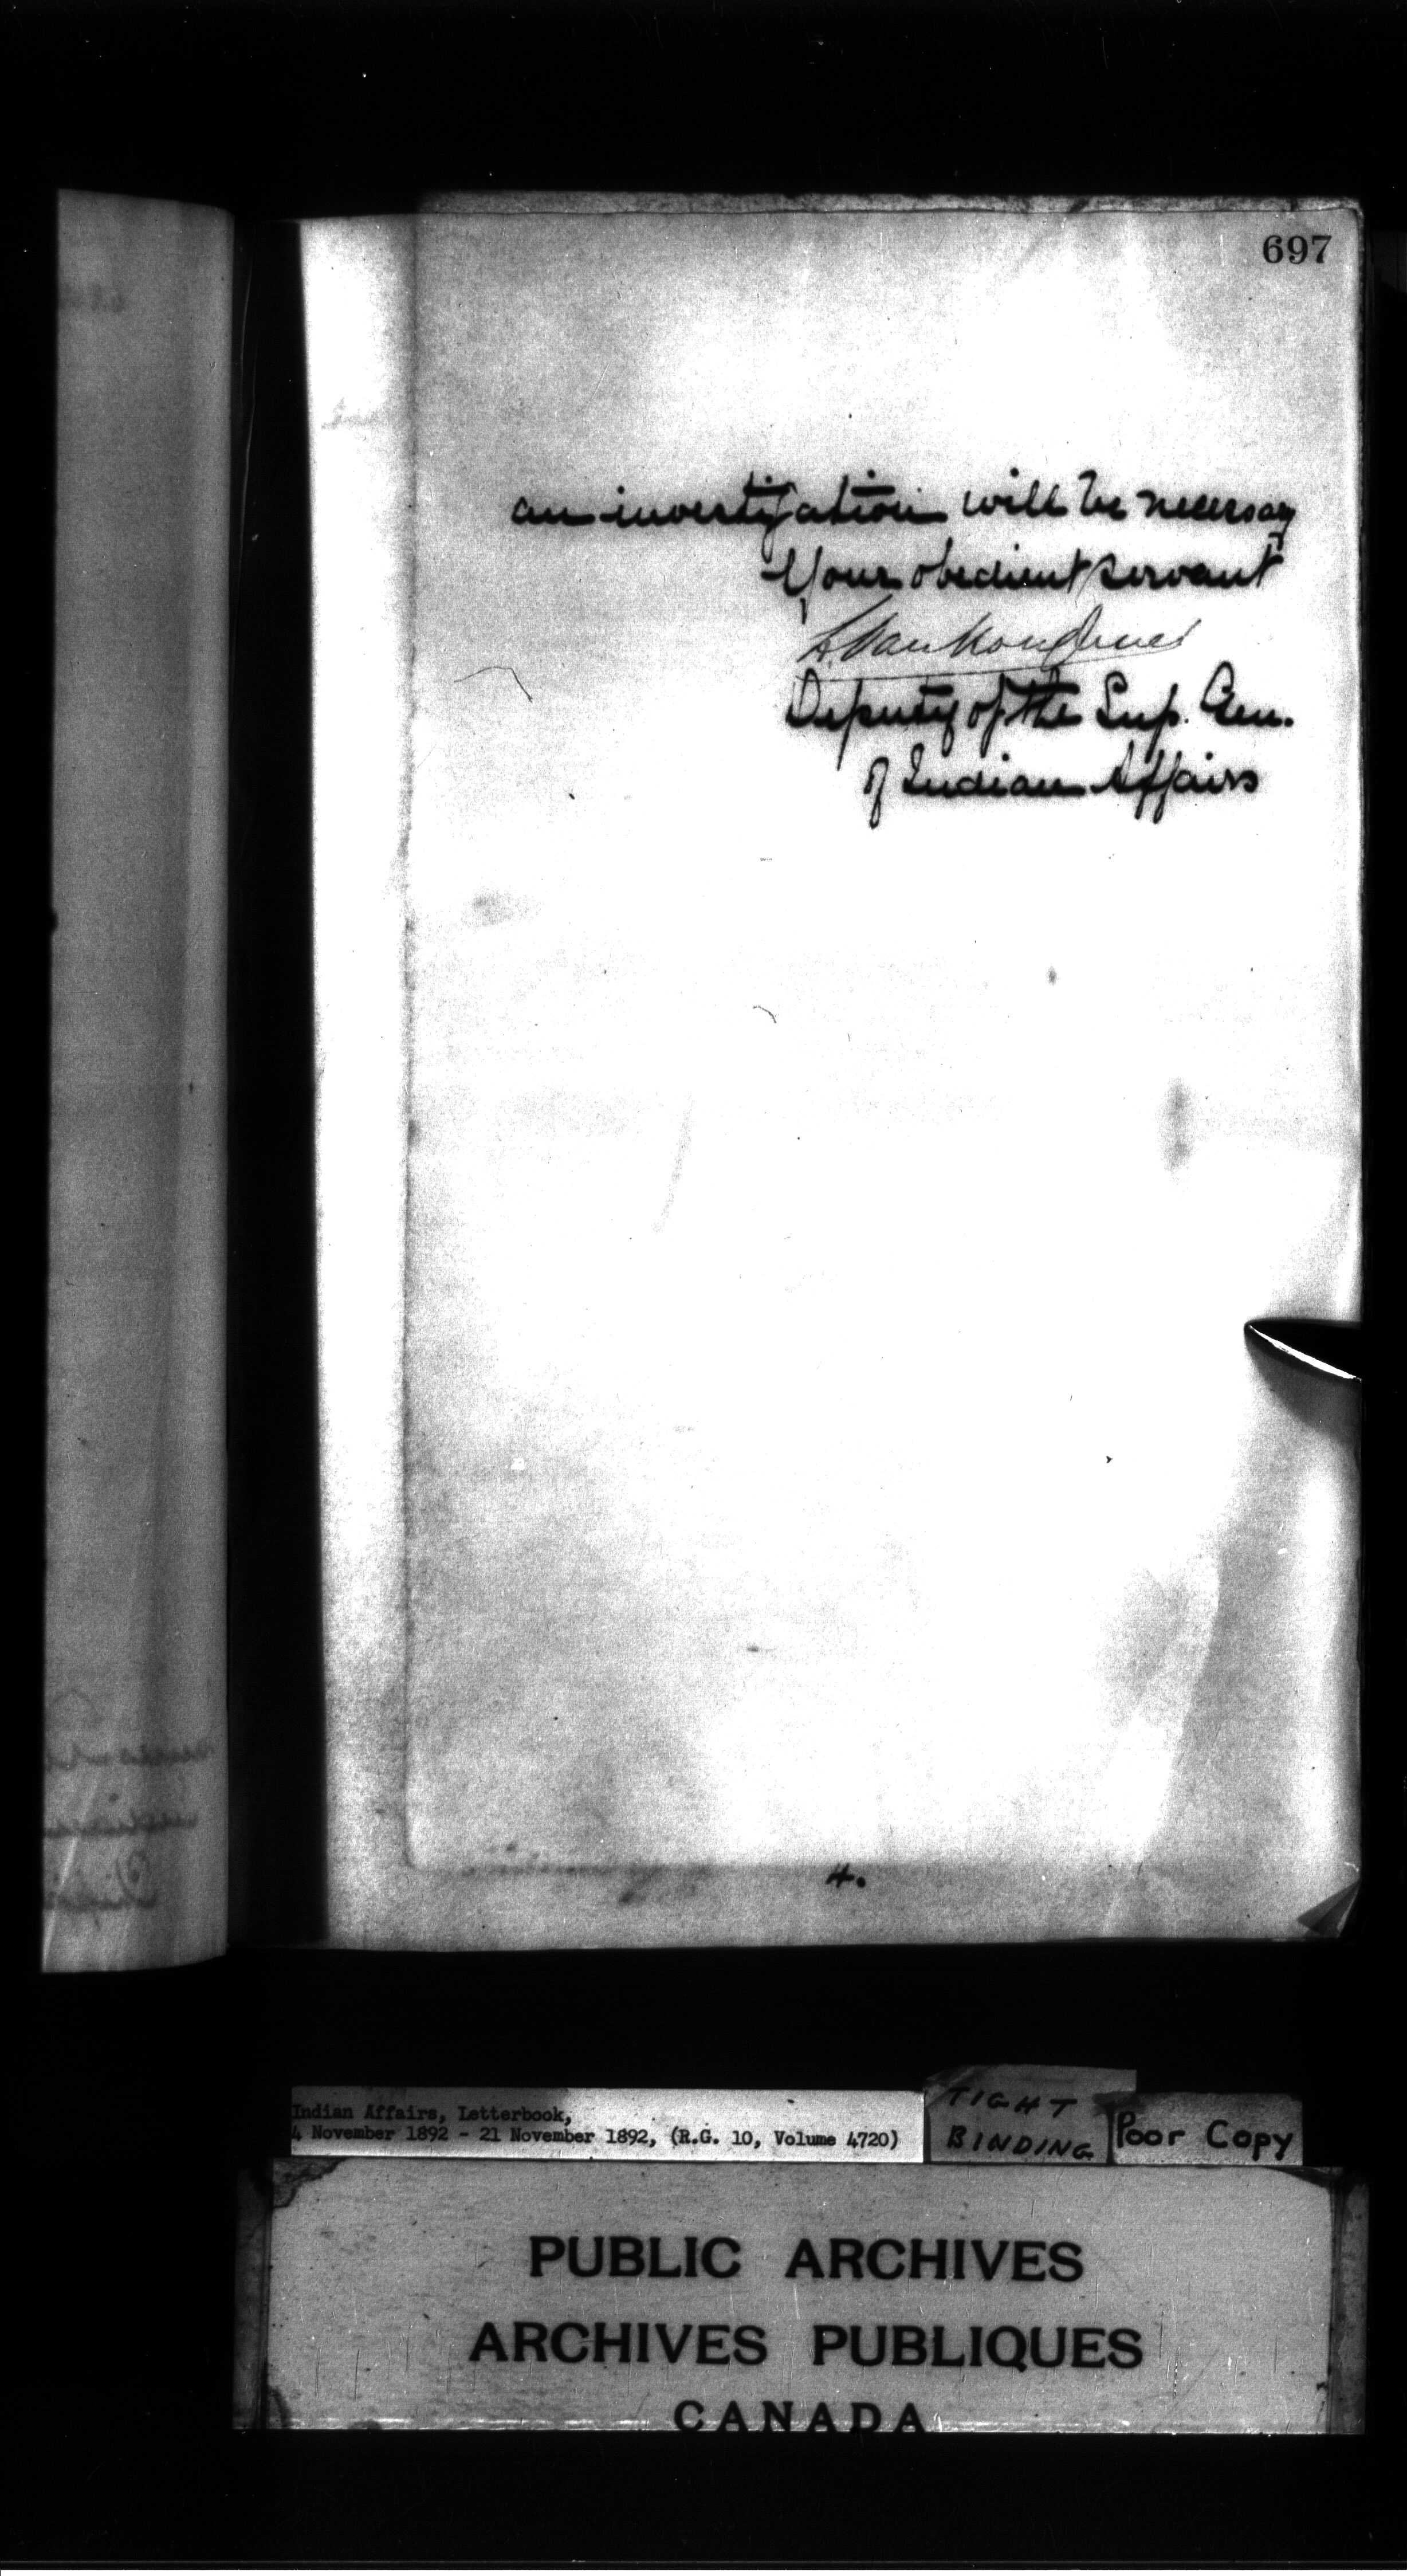 697
an investigation will be necessary
Your obedient servant
L. Vankoughnet
Deputy of the Sup. Gen.
of Indian Affairs
4.
Indian Affairs, Letterbook,
4 November 1892 - 21 November 1892, (R.G. 10, Volume 4720)
TIGHT
BINDING
Poor Copy
PUBLIC ARCHIVES
ARCHIVES PUBLIQUES
CANADA